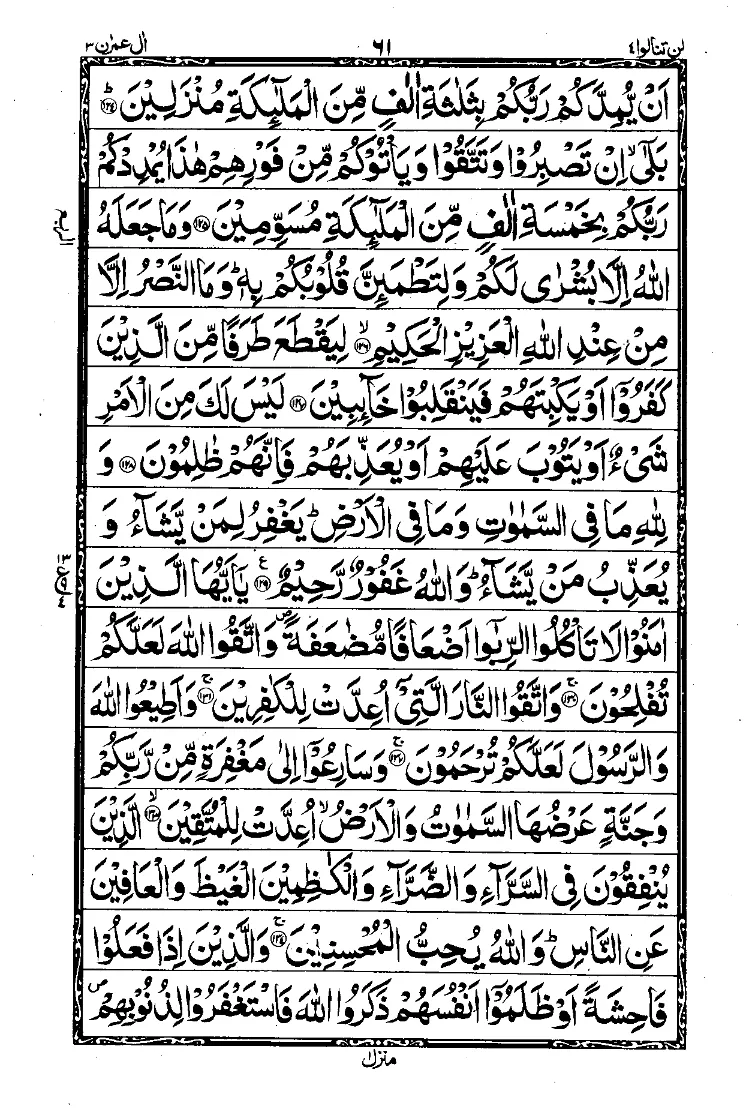 لن تنالوا ٤ ٦١ اٰل عمرٰن ٣
اَنْ يُّمِدَّكُمْ رَبُّكُمْ بِثَلٰثَةِ اٰلٰفٍ مِّنَ الْمَلٰٓئِكَةِ مُنْزَلِيْنَ ؕ﴿۱۲۴﴾
بَلٰٓى ۙ اِنْ تَصْبِرُوْا وَتَتَّقُوْا وَيَاْتُوْكُمْ مِّنْ فَوْرِهِمْ هٰذَا يُمْدِدْكُمْ
رَبُّكُمْ بِخَمْسَةِ اٰلٰفٍ مِّنَ الْمَلٰٓئِكَةِ مُسَوِّمِيْنَ ﴿۱۲۵﴾ وَمَا جَعَلَهُ
اللّٰهُ اِلَّا بُشْرٰى لَكُمْ وَلِتَطْمَئِنَّ قُلُوْبُكُمْ بِهٖ ؕ وَمَا النَّصْرُ اِلَّا
مِنْ عِنْدِ اللّٰهِ الْعَزِيْزِ الْحَكِيْمِ ۙ﴿۱۲۶﴾ لِيَقْطَعَ طَرَفًا مِّنَ الَّذِيْنَ
كَفَرُوْۤا اَوْ يَكْبِتَهُمْ فَيَنْقَلِبُوْا خَآئِبِيْنَ ﴿۱۲۷﴾ لَيْسَ لَكَ مِنَ الْاَمْرِ
شَىْءٌ اَوْ يَتُوْبَ عَلَيْهِمْ اَوْ يُعَذِّبَهُمْ فَاِنَّهُمْ ظٰلِمُوْنَ ﴿۱۲۸﴾ وَ
لِلّٰهِ مَا فِى السَّمٰوٰتِ وَمَا فِى الْاَرْضِ ؕ يَغْفِرُ لِمَنْ يَّشَآءُ وَ
يُعَذِّبُ مَنْ يَّشَآءُ ؕ وَاللّٰهُ غَفُوْرٌ رَّحِيْمٌ ﴿۱۲۹﴾ ع يٰۤاَيُّهَا الَّذِيْنَ
اٰمَنُوْا لَا تَاْكُلُوا الرِّبٰۤوا اَضْعَافًا مُّضٰعَفَةً ۪ وَّاتَّقُوا اللّٰهَ لَعَلَّكُمْ
تُفْلِحُوْنَ ۚ﴿۱۳۰﴾ وَاتَّقُوا النَّارَ الَّتِىْۤ اُعِدَّتْ لِلْكٰفِرِيْنَ ۚ﴿۱۳۱﴾ وَاَطِيْعُوا اللّٰهَ
وَالرَّسُوْلَ لَعَلَّكُمْ تُرْحَمُوْنَ ۚ﴿۱۳۲﴾ وَسَارِعُوْۤا اِلٰى مَغْفِرَةٍ مِّنْ رَّبِّكُمْ
وَجَنَّةٍ عَرْضُهَا السَّمٰوٰتُ وَالْاَرْضُ ۙ اُعِدَّتْ لِلْمُتَّقِيْنَ ۙ﴿۱۳۳﴾ الَّذِيْنَ
يُنْفِقُوْنَ فِى السَّرَّآءِ وَالضَّرَّآءِ وَالْكٰظِمِيْنَ الْغَيْظَ وَالْعَافِيْنَ
عَنِ النَّاسِ ؕ وَاللّٰهُ يُحِبُّ الْمُحْسِنِيْنَ ۚ﴿۱۳۴﴾ وَالَّذِيْنَ اِذَا فَعَلُوْا
فَاحِشَةً اَوْ ظَلَمُوْۤا اَنْفُسَهُمْ ذَكَرُوا اللّٰهَ فَاسْتَغْفَرُوْا لِذُنُوْبِهِمْ ۪
منزل ١